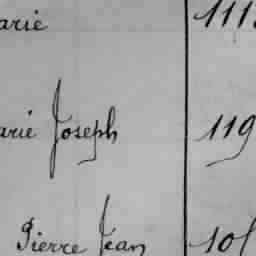 arie 111
arie Joseph 119
Pierre Jean 10